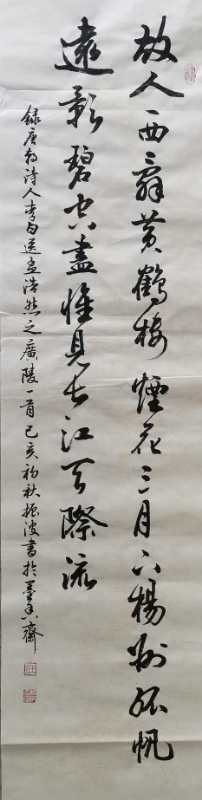 故人西辭黃鶴樓煙花三月下楊州孤帆
遠影碧空盡惟見長江天際流
錄唐朝詩人李白送孟浩然之廣陵一首己亥初秋振波書於墨香齋